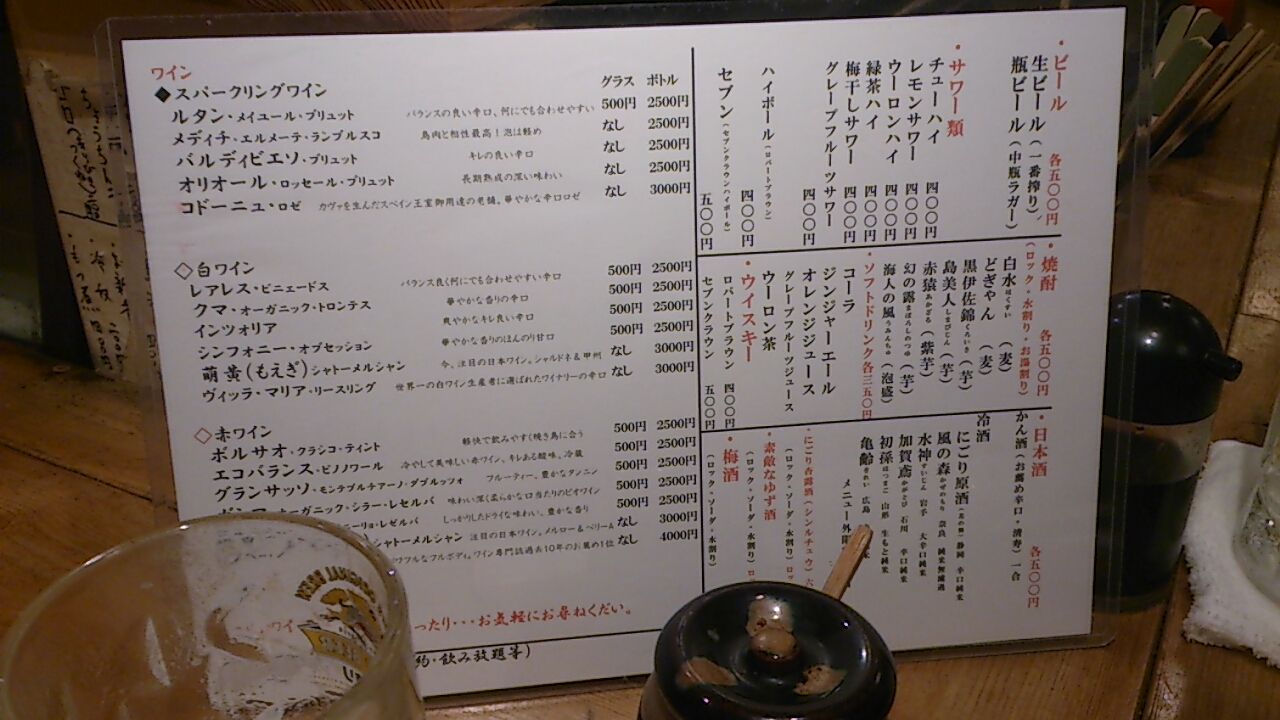 ワイン
グラス ボトル
◆スパークリングワイン
ルタン・メイユール・ブリュット バランスの良い辛口、何にでも合わせやすい 500円 2500円
メディチ・エルメーテ・ランブルスコ 鳥肉と相性最高!泡は軽め なし 2500円
バルディビエソ・ブリュット キレの良い辛口 なし 2500円
オリオール・ロッセール・ブリュット 長期熟成の深い味わい なし 2500円
コドーニュ・ロゼ カヴァを生んだスペイン王室御用達の老舗。華やかな辛口ロゼ なし 3000円
◇白ワイン
レアレス・ビニェードス バランス良く何にでも合わせやすい辛口 500円 2500円
クマ・オーガニック・トロンテス 華やかな香りの辛口 500円 2500円
インツォリア 爽やかなキレ良い辛口 500円 2500円
シンフォニー・オブセッション 華やかな香りのほんのり甘口 500円 2500円
萌黄(もえぎ)シャトーメルシャン 今、注目の日本ワイン。シャルドネ&甲州 なし 3000円
ヴィッラ・マリア・リースリング 世界一の白ワイン生産者に選ばれたワイナリーの辛口 なし 3000円
◇赤ワイン
ボルサオ・クラシコ・ティント 軽快で飲みやすく焼き鳥に合う 500円 2500円
エコバランス・ピノノワール 冷やして美味しい赤ワイン、キレある酸味、冷蔵 500円 2500円
グランサッソ・モンテプルチアーノ・ダブルッツォ フルーティー、豊かなタンニン 500円 2500円
オーガニック・シラー・レセルバ 味わい深く柔らかな口当たりのビオワイン 500円 2500円
ニーリョ・レゼルバ しっかりしたドライな味わい。豊かな香り 500円 2500円
シャトーメルシャン 注目の日本ワイン。メルロー&ベリーA なし 3000円
フルなフルボディ。ワイン専門誌過去10年のお薦め1位 なし 4000円
ったり・・・お気軽にお尋ねください。
約・飲み放題等)
・ビール 各五〇〇円
生ビール(一番搾り)
瓶ビール(中瓶ラガー)
・サワー類
チューハイ 四〇〇円
レモンサワー 四〇〇円
ウーロンハイ 四〇〇円
緑茶ハイ 四〇〇円
梅干しサワー 四〇〇円
グレープフルーツサワー 四〇〇円
ハイボール(ロバートブラウン) 四〇〇円
セブン(セブンクラウンハイボール) 五〇〇円
・焼酎 各五〇〇円
(ロック・水割り・お湯割り)
白水はくすい(麦)
どぎゃん(麦)
黒伊佐錦くろいさ(芋)
島美人しまびじん(芋)
赤猿あかざる(紫芋)
幻の露まぼろしのつゆ(芋)
海人の風うみんちゅ(泡盛)
・ソフトドリンク各三五〇円
コーラ
ジンジャーエール
オレンジジュース
グレープフルーツジュース
ウーロン茶
・ウイスキー
ロバートブラウン 四〇〇円
セブンクラウン 五〇〇円
・日本酒 各五〇〇円
かん酒(お薦め辛口・清寿)一合
冷酒
にごり原酒 静岡 辛口純米
風の森かぜのもり 奈良 純米無濾過
水神すいじん 岩手 大辛口純米
加賀鳶かがとび 石川 辛口純米
初孫はつまご 山形 生もと純米
亀齢きれい 広島
メニュー外
・にごり杏露酒(シンルチュウ)
(ロック・ソーダ・水割り)
・素敵なゆず酒
(ロック・ソーダ・水割り)
・梅酒
(ロック・ソーダ・水割り)